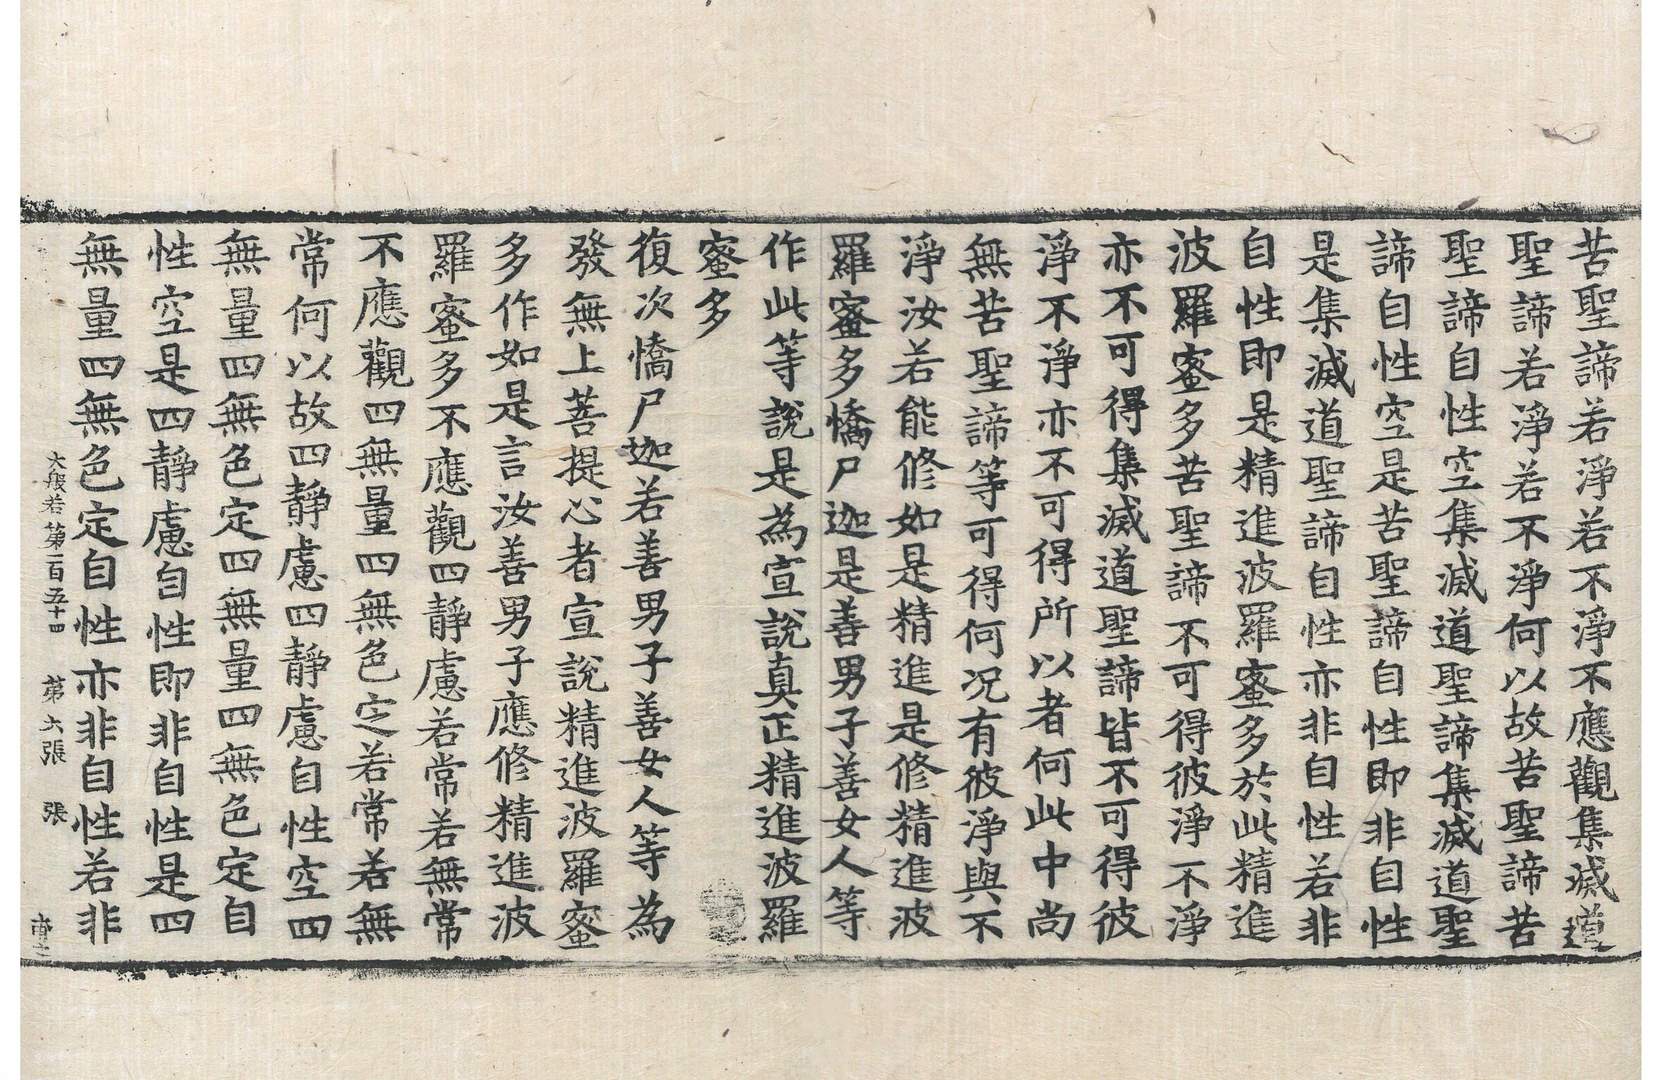 苦聖諦若淨若不淨不應觀集滅道
聖諦若淨若不淨何以故苦聖諦苦
聖諦自性空集滅道聖諦集滅道聖
諦自性空是苦聖諦自性即非自性
是集滅道聖諦自性亦非自性若非
自性即是精進波羅蜜多於此精進
波羅蜜多苦聖諦不可得彼淨不淨
亦不可得集滅道聖諦皆不可得彼
淨不淨亦不可得所以者何此中尚
無苦聖諦等可得何況有彼淨與不
淨汝若能修如是精進是修精進波
羅蜜多憍尸迦是善男子善女人等
作此等說是為宣說真正精進波羅
蜜多
復次憍尸迦若善男子善女人等為
發無上菩提心者宣說精進波羅蜜
多作如是言汝善男子應修精進波
羅蜜多不應觀四靜慮若常若無常
不應觀四無量四無色定若常若無
常何以故四靜慮四靜慮自性空四
無量四無色定四無量四無色定自
性空是四靜慮自性即非自性是四
無量四無色定自性亦非自性若非
大般若第一百五十四 第六張 張